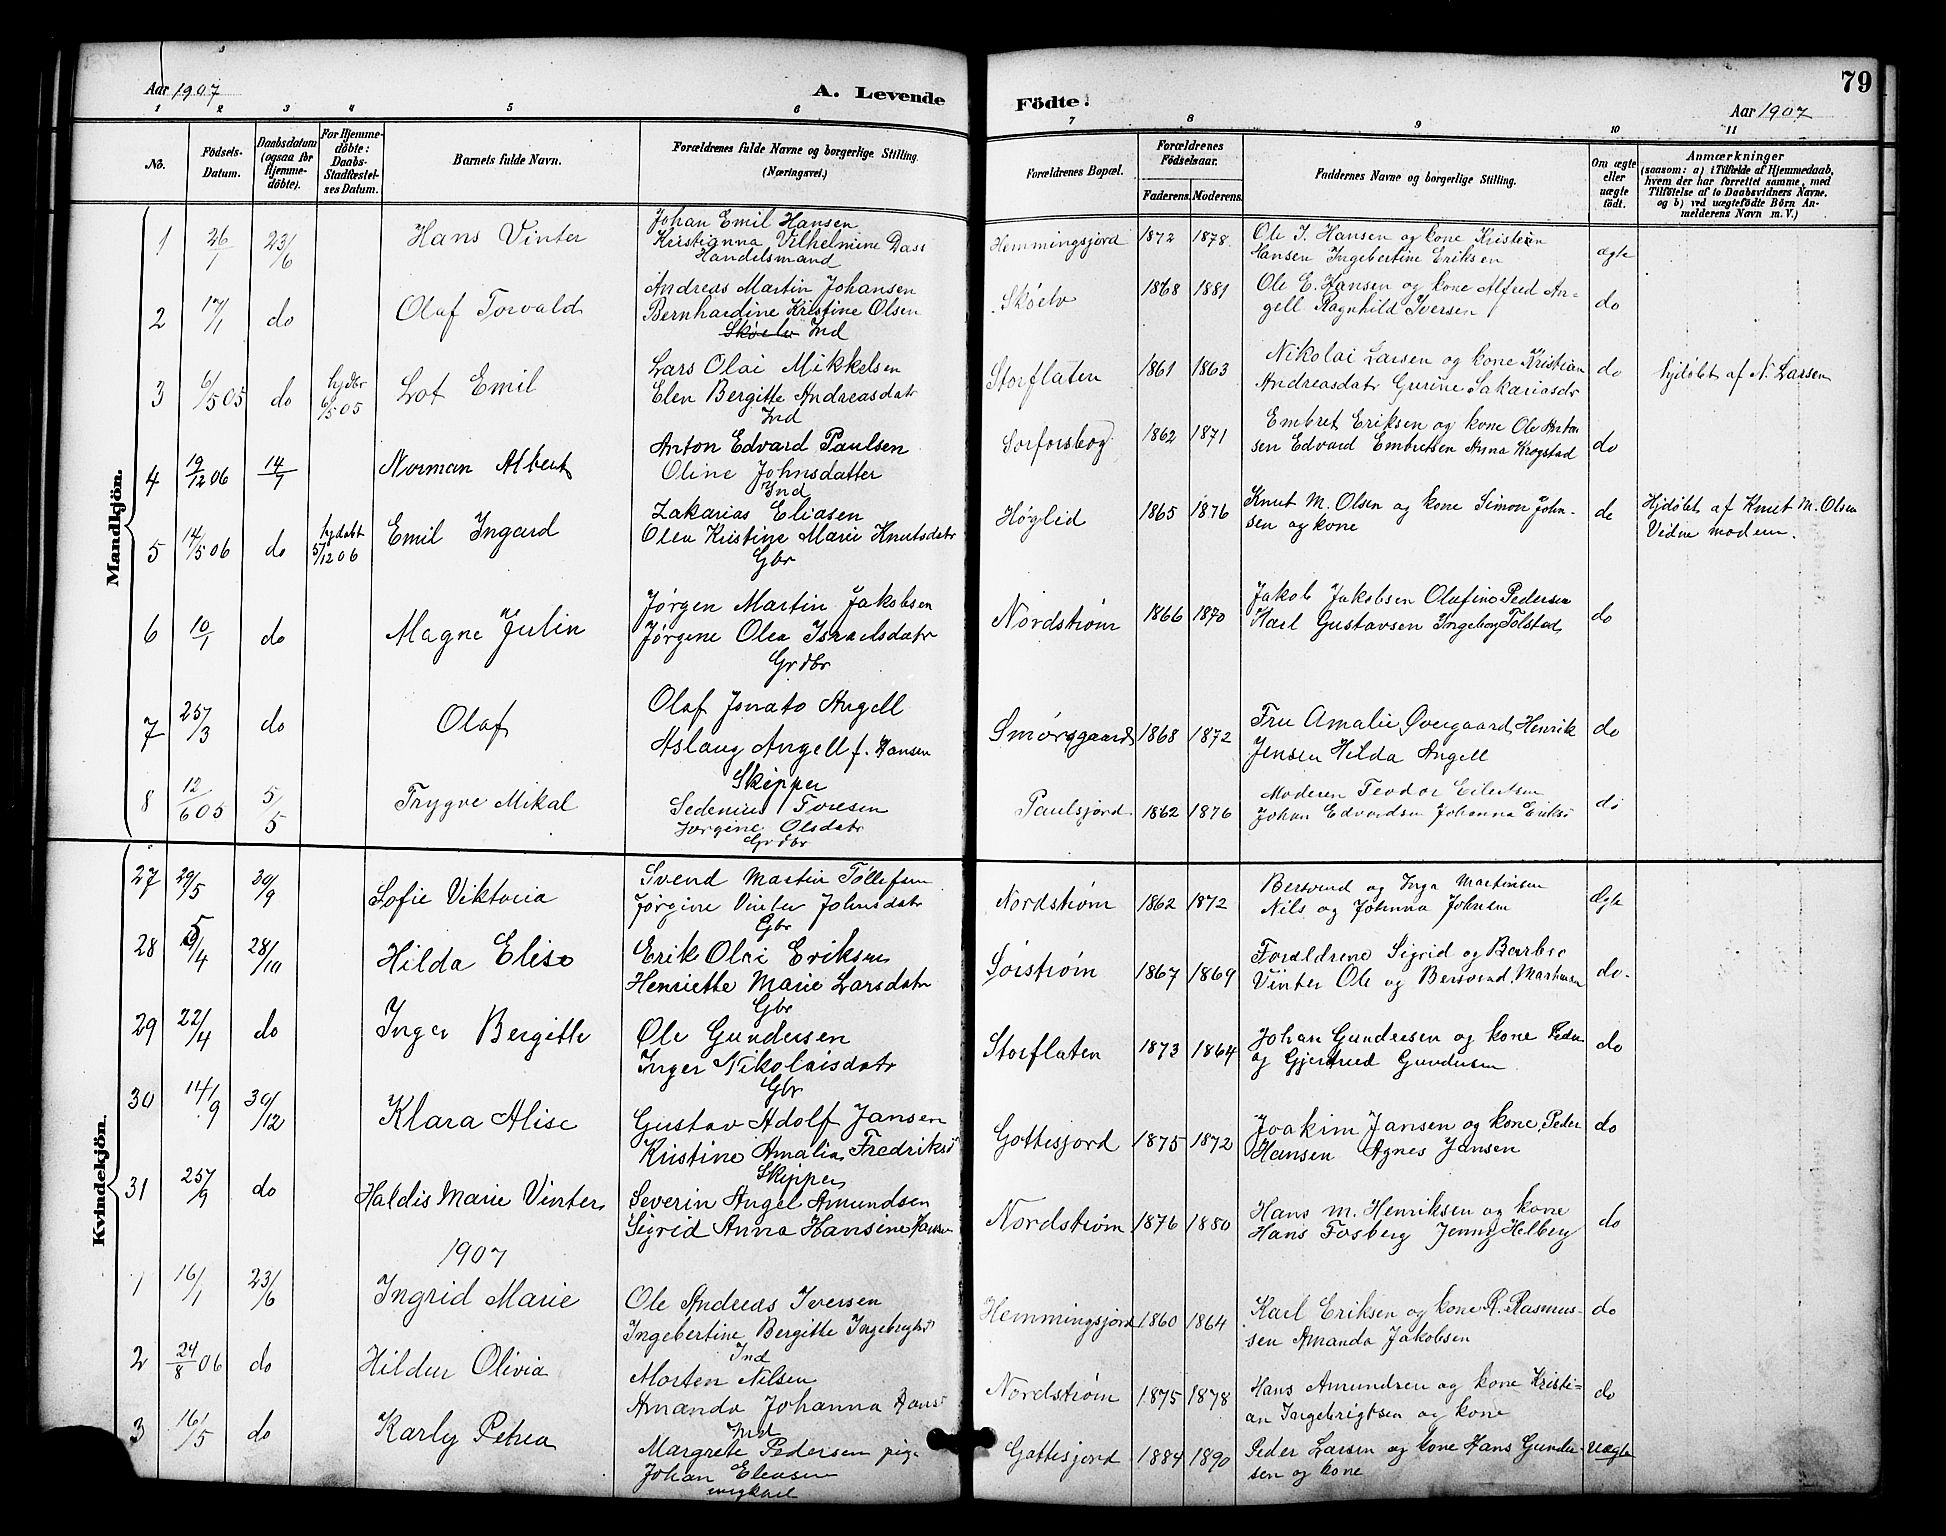 Aar 1907
A. Levende
Födte.
79
Aar 1907
1 2 3 4 5 6 7 8 9 10 11
No.
Födsels-Datum.
Daabsdatum (ogsaa for Hjemme-döbte).
For Hjemme-döbte: Daabs-Stadfæstel-ses Datum.
Barnets fulde Navn.
Forældrenes fulde Navne og borgerlige Stilling. (Næringsvei.)
Forældrenes Bopæl.
Forældrenes Födselsaar.
Faderens. Moderens.
Faddernes Navne og borgerlige Stilling.
Om ægte eller uægte födt.
Anmærkninger
(saasom: a) i Tilfælde af Hjemmedaab, hvem der har forrettet samme, med Tilföielse af to Daabsvidners Navne, og b) ved uægtefödte Börn Anmelderens Navn m.V.)
Mandkjön.
1 26/1 23/6 Hans Vinter
Johan Emil Hansen
Kristianna Vilhelmine Dass
Handelsmand
Hemmingsjord 1872 1878
Ole J. Hansen og kone Kristian
Hansen Ingebertine Eriksen
ægte
2 17/1 do Olaf Torvald
Andreas Martin Johansen
Bernhardine Kristine Olsen
Skøelv Ind
Skøelv 1868 1881
Ole E. Hansen og kone Alfred An-
gell Ragnhild Iversen
do
3 6/5 05 do hjdbt 6/5 05 Lot Emil
Lars Olai Mikkelsen
Elen Bergitte Andreasdatr
Ind
Storflaten 1861 1863
Nikolai Larsen og kone Kristian
Andreasdatr Gurine Sakariasdr
do
hjdøbt af N. Larsen
4 19/12 06 14/7 Norman Albert
Anton Edvard Paulsen
Oline Johnsdatter
Ind
Sorforsbog 1862 1871
Embret Eriksen og kone Ole Anton
sen Edvard Embretsen Anna Krogstad
do
5 14/5 06 do hjdøbt 5/12 06 Emil Ingard
Zakarias Eliasen
Olea Kristine Marie Knutsdatr
Gbr
Høglid 1865 1876
Knut M. Olsen og kone Simon John-
sen og kone
do
Hjdøbt af Knut M. Olsen
Vidne moderen.
6 10/1 do Magne Julin
Jørgen Martin Jakobsen
Jørgine Olea Israelsdatr
Grdbr
Nordstrøm 1866 1870
Jakob Jakobsen Olafine Pedersen
Karl Gustavsen Ingeborg Tolstad
do
7 25/3 do Olaf
Olaf Jonato Angell
Aslaug Angell f. Hansen
Skipper
Smørsgaard 1868 1872
Fru Amalie Overgaard, Henrik
Jensen Hilda Angell
do
8 12/6 05 5/5 Trygve Mikal
Sedenius Toresen
Jørgine Olsdatr
Grdbr
Paulsjord 1862 1876
Moderen Teodor Eilertsen
Johan Edvardsen Johanna Eriks
do
Kvindekjön.
27 29/5 30/9 Sofie Viktoria
Svend Martin Tollefsen
Jørgine Vinter Johnsdatr
Gbr
Nordstrøm 1862 1872
Bersvend og Inga Martinsen
Nils og Johanna Johnsen
Ægte
28 5/4 28/10 Hilda Elise
Erik Olai Eriksen
Henriette Marie Larsdatr
Gbr
Sørstrøm 1867 1869
Forældrene Sigrid og Barbro
Vinter Ole og Bersvend Martinsen
do
29 22/4 do Inger Bergitte
Ole Gundersen
Inger Nikolaisdatr
Gbr
Storflaten 1873 1864
Johan Gundersen og kone Peder
og Gjertrud Gundersen
do
30 14/9 30/12 Klara Alise
Gustav Adolf Jansen
Kristine Amalia Fredriks
Skipper
Gottesjord 1875 1872
Joakim Jansen og kone, Peder
Hansen Agnes Jansen
do
31 25/9 do Haldis Marie Vinter
Severin Angel Amundsen
Sigrid Anna Hansine Hansen
Nordstrøm 1876 1850
Hans M. Henriksen og kone
Hans Fosberg Jenny Helberg
do
1907
1 16/1 23/6 Ingrid Marie
Ole Andreas Iversen
Ingebertine Bergitte Ingebrigts
Ind
Hemmingsjord 1860 1864
Karl Eriksen og kone R. Rasmus-
sen Amanda Jakobsen
do
2 24/8 06 do Hildur Olivia
Morten Nilsen
Amanda Johanna Hans
Ind
Nordstrøm 1875 1878
Hans Amundsen og kone Kristi-
an Ingebrigtsen og kone
do
3 16/5 do Karly Petrea
Margrete Pedersen pige
Johan Eleasen
ungkarl
Gottesjord 1884 1890
Peder Larsen og kone Hans Gunder-
sen og kone
uægte